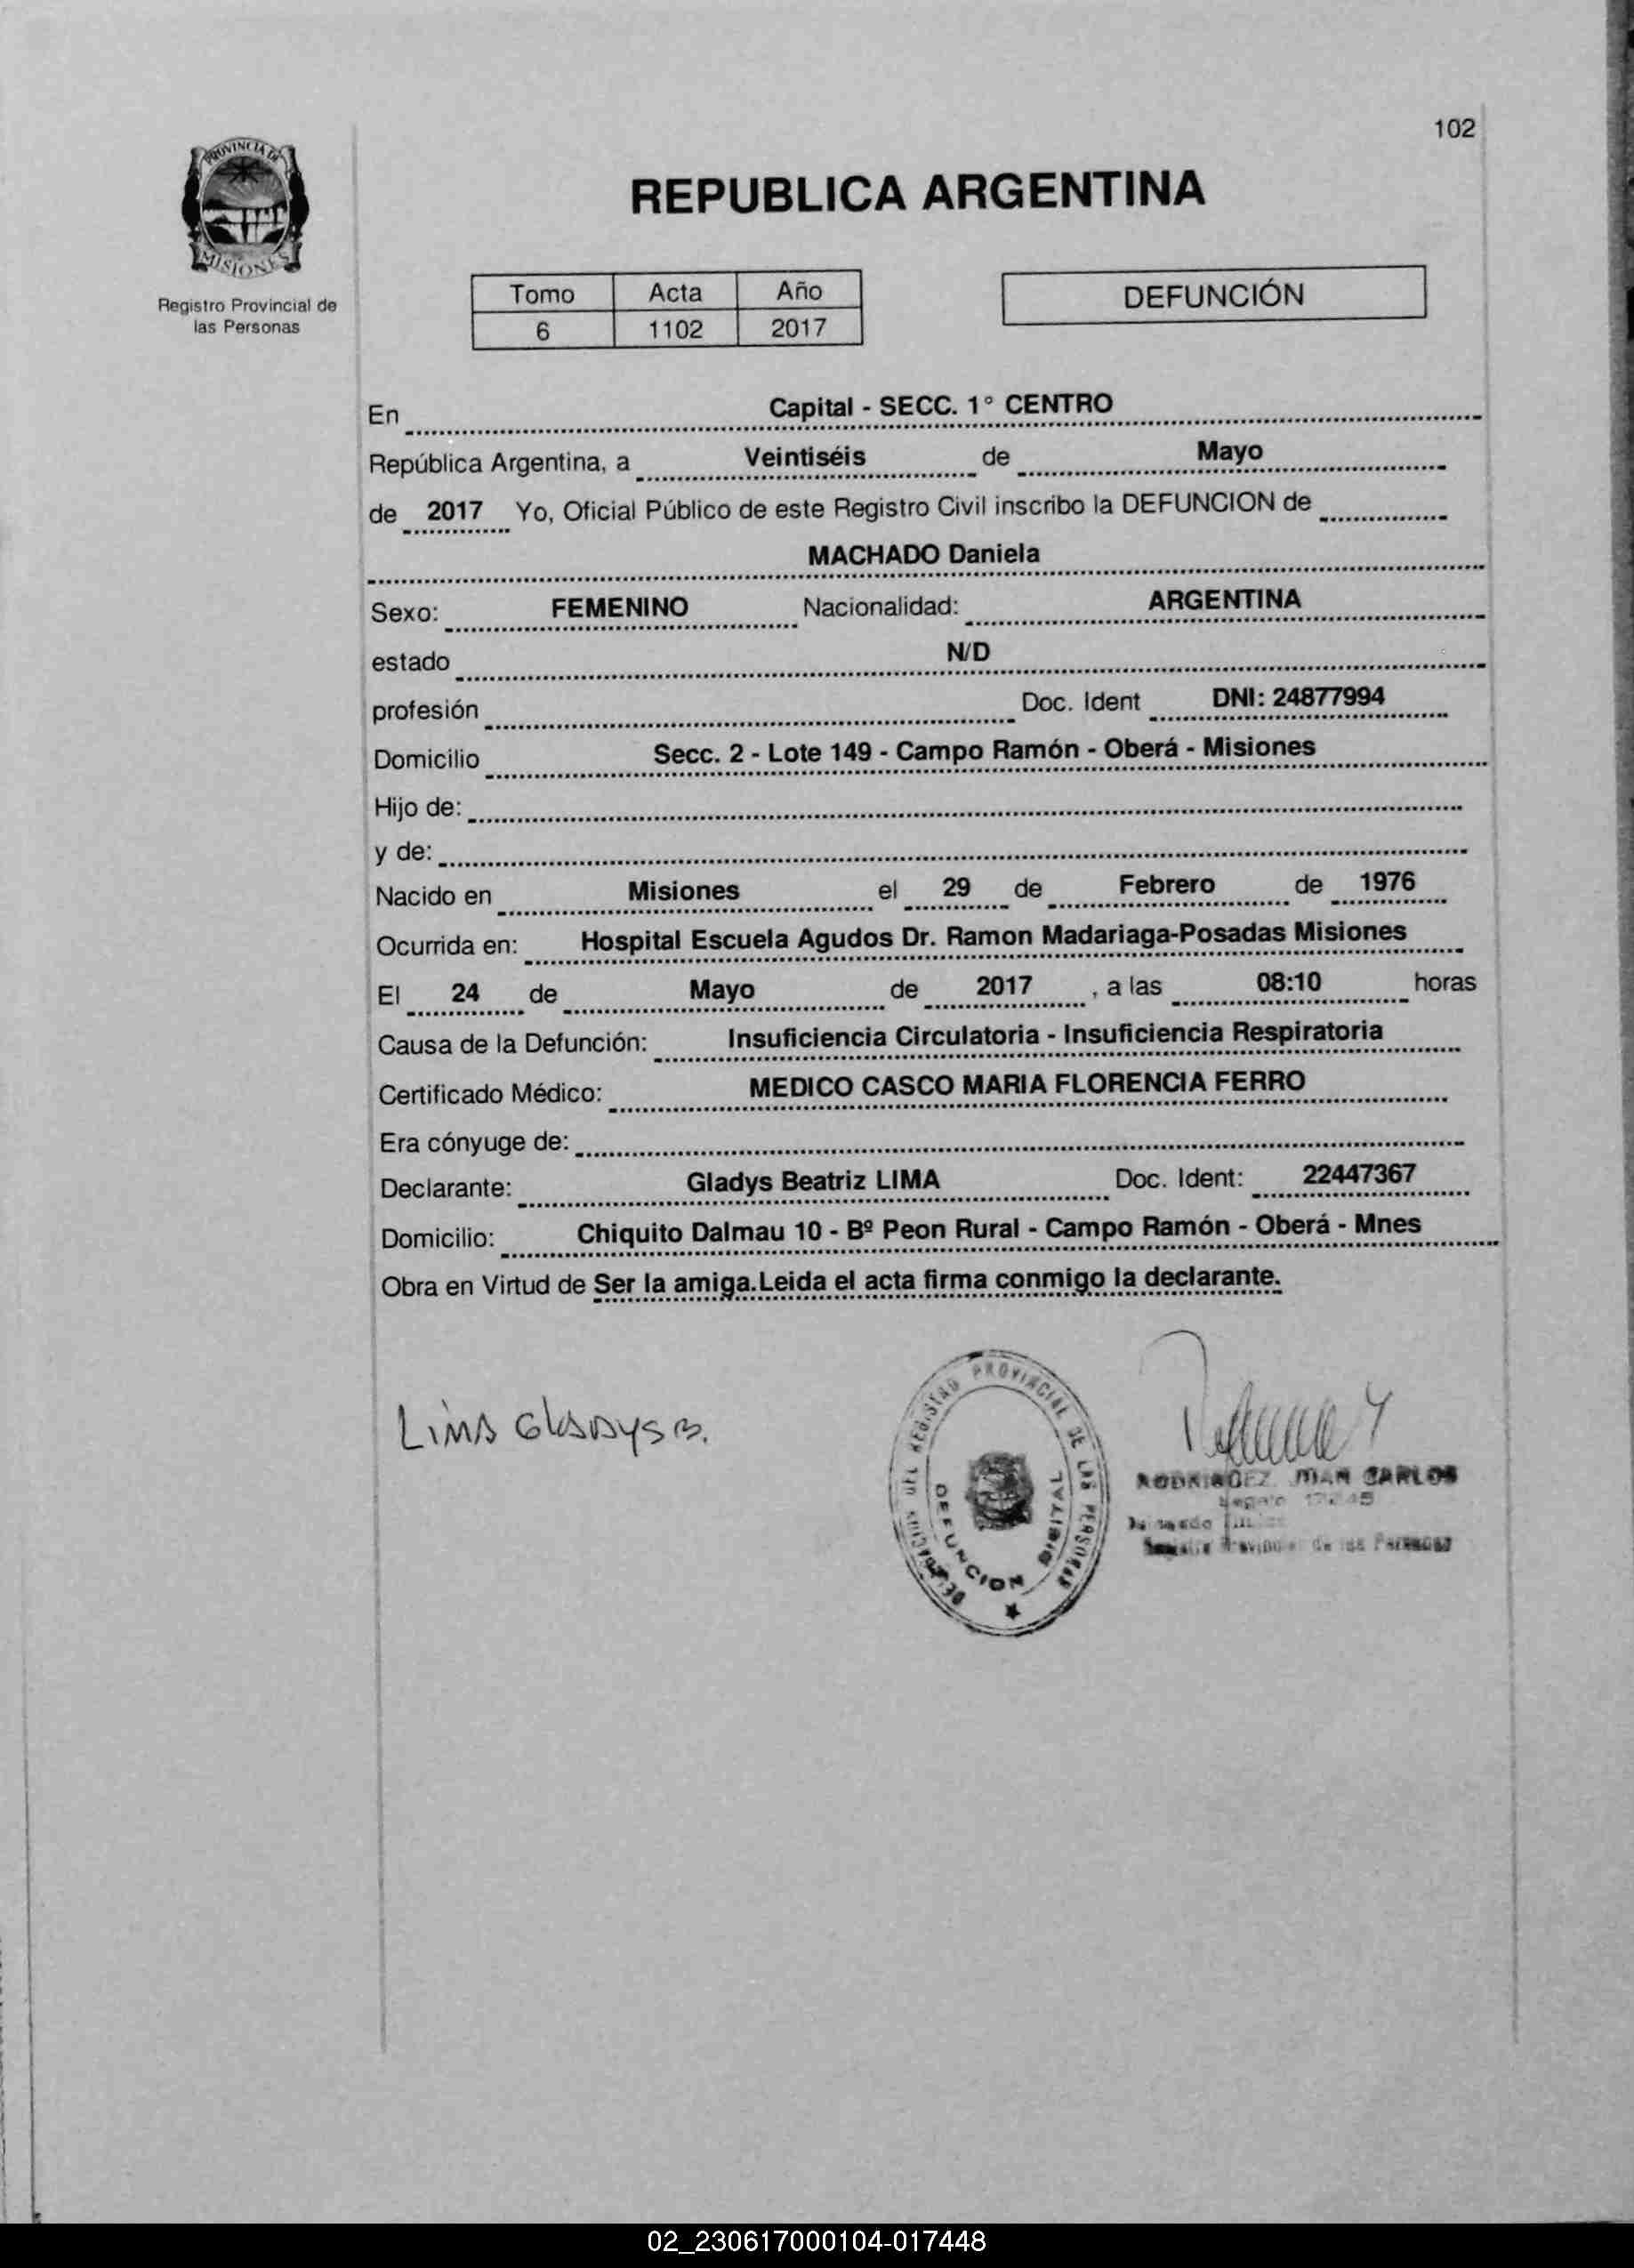 102
PROVINCIA DE
MISIONES
Registro Provincial de
las Personas
REPUBLICA ARGENTINA
Tomo Acta Año
6 1102 2017
DEFUNCIÓN
En Capital - SECC. 1° CENTRO
República Argentina, a Veintiséis de Mayo
de 2017 Yo, Oficial Público de este Registro Civil inscribo la DEFUNCION de
MACHADO Daniela
Sexo: FEMENINO Nacionalidad: ARGENTINA
estado N/D
profesión Doc. Ident DNI: 24877994
Domicilio Secc. 2 - Lote 149 - Campo Ramón - Oberá - Misiones
Hijo de:
y de:
Nacido en Misiones el 29 de Febrero de 1976
Ocurrida en: Hospital Escuela Agudos Dr. Ramon Madariaga-Posadas Misiones
El 24 de Mayo de 2017 , a las 08:10 horas
Causa de la Defunción: Insuficiencia Circulatoria - Insuficiencia Respiratoria
Certificado Médico: MEDICO CASCO MARIA FLORENCIA FERRO
Era cónyuge de:
Declarante: Gladys Beatriz LIMA Doc. Ident: 22447367
Domicilio: Chiquito Dalmau 10 - Bº Peon Rural - Campo Ramón - Oberá - Mnes
Obra en Virtud de Ser la amiga.Leida el acta firma conmigo la declarante.
Lima Gladys B.
DEL REGISTRO PROVINCIAL DE LAS PERSONAS
DEFUNCION DIGITAL
RODRIGUEZ JUAN CARLOS
Registro Provincial de las Personas
02_230617000104-017448